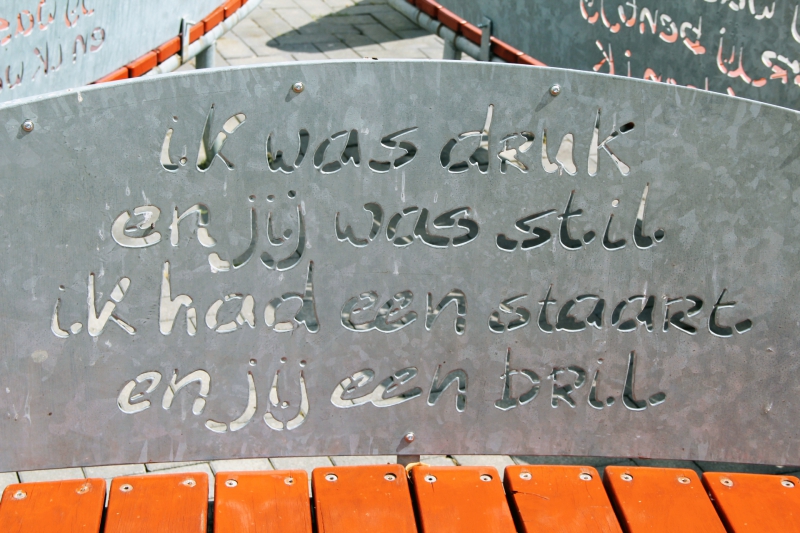 ik was druk
en jij was stil.
ik had een staart.
en jij een bril.